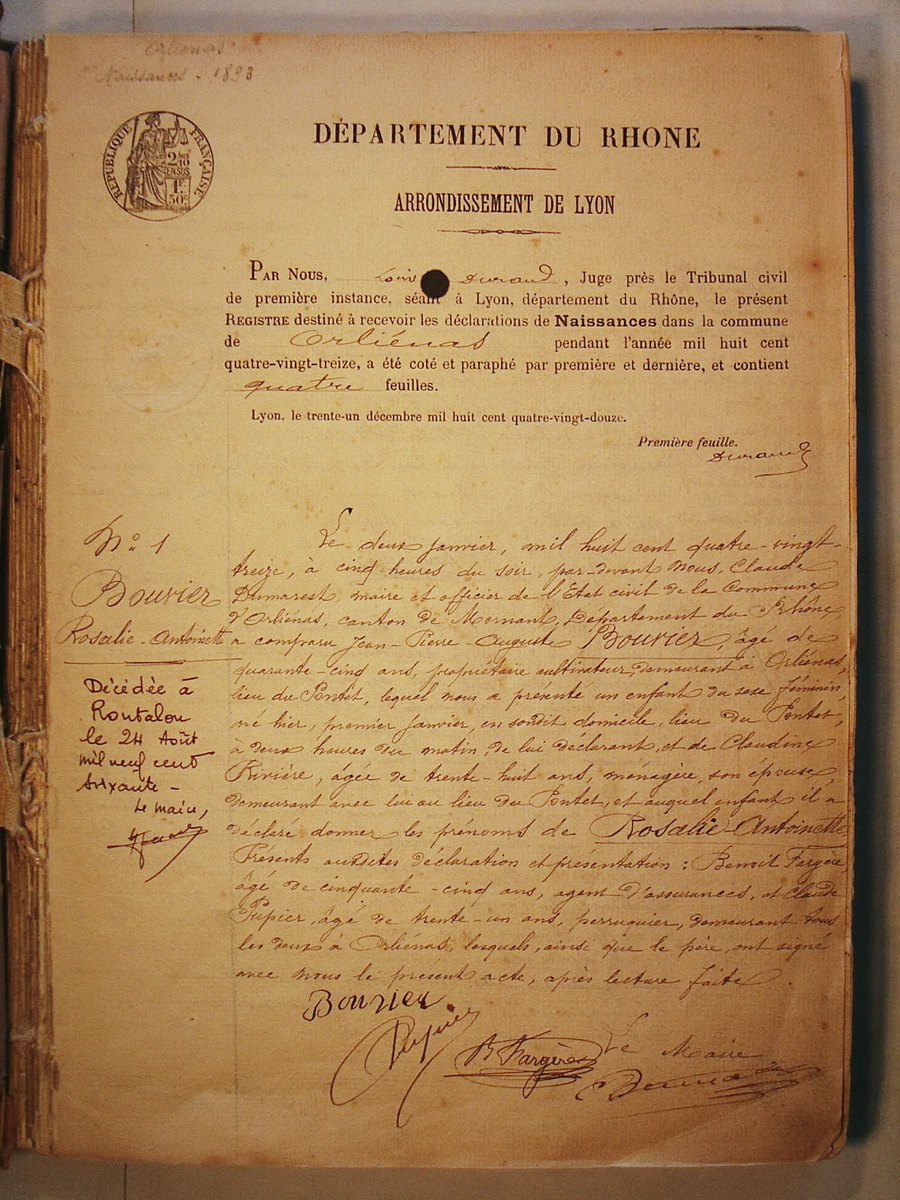 Orliénas
Naissances - 1893
RÉPUBLIQUE FRANÇAISE
2/10
EN SUS
1F
50c
DÉPARTEMENT DU RHONE
ARRONDISSEMENT DE LYON
PAR NOUS, Louis Durand, Juge près le Tribunal civil
de première instance, séant à Lyon, département du Rhône, le présent
REGISTRE destiné à recevoir les déclarations de Naissances dans la commune
de Orliénas pendant l'année mil huit cent
quatre-vingt-treize, a été coté et paraphé par première et dernière, et contient
quatre feuilles.
Lyon, le trente-un décembre mil huit cent quatre-vingt-douze.
Première feuille.
Durand
N° 1
Bouvier
Rosalie-Antoinette
Décédée à
Rontalon
le 24 Août
mil neuf cent
soixante -
Le maire,
Le deux janvier, mil huit cent quatre-vingt-
treize, à cinq heures du soir, par-devant Nous, Claude
Dumarest, maire et officier de l'Etat civil de la Commune
d'Orliénas, canton de Mornant, Département du Rhône,
a comparu Jean-Pierre-Auguste Bouvier, âgé de
quarante-cinq ans, propriétaire cultivateur, demeurant à Orliénas,
lieu du Pontet, lequel nous a présenté un enfant du sexe féminin,
né hier, premier janvier, en sondit domicile, lieu du Pontet,
à deux heures du matin, de lui déclarant, et de Claudine
Rivière, âgée de trente-huit ans, ménagère, son épouse,
demeurant avec lui au lieu du Pontet, et auquel enfant il a
déclaré donner les prénoms de Rosalie-Antoinette.
Présents auxdites déclaration et présentation : Benoit Fargère
âgé de cinquante-cinq ans, agent d'assurances, et Claude
Pupier, âgé de trente-un ans, perruquier, demeurant tous
les deux à Orliénas, lesquels, ainsi que le père, ont signé
avec nous le présent acte, après lecture faite.
Bouvier
Pupier
B Fargère
Le Maire
Dumarest